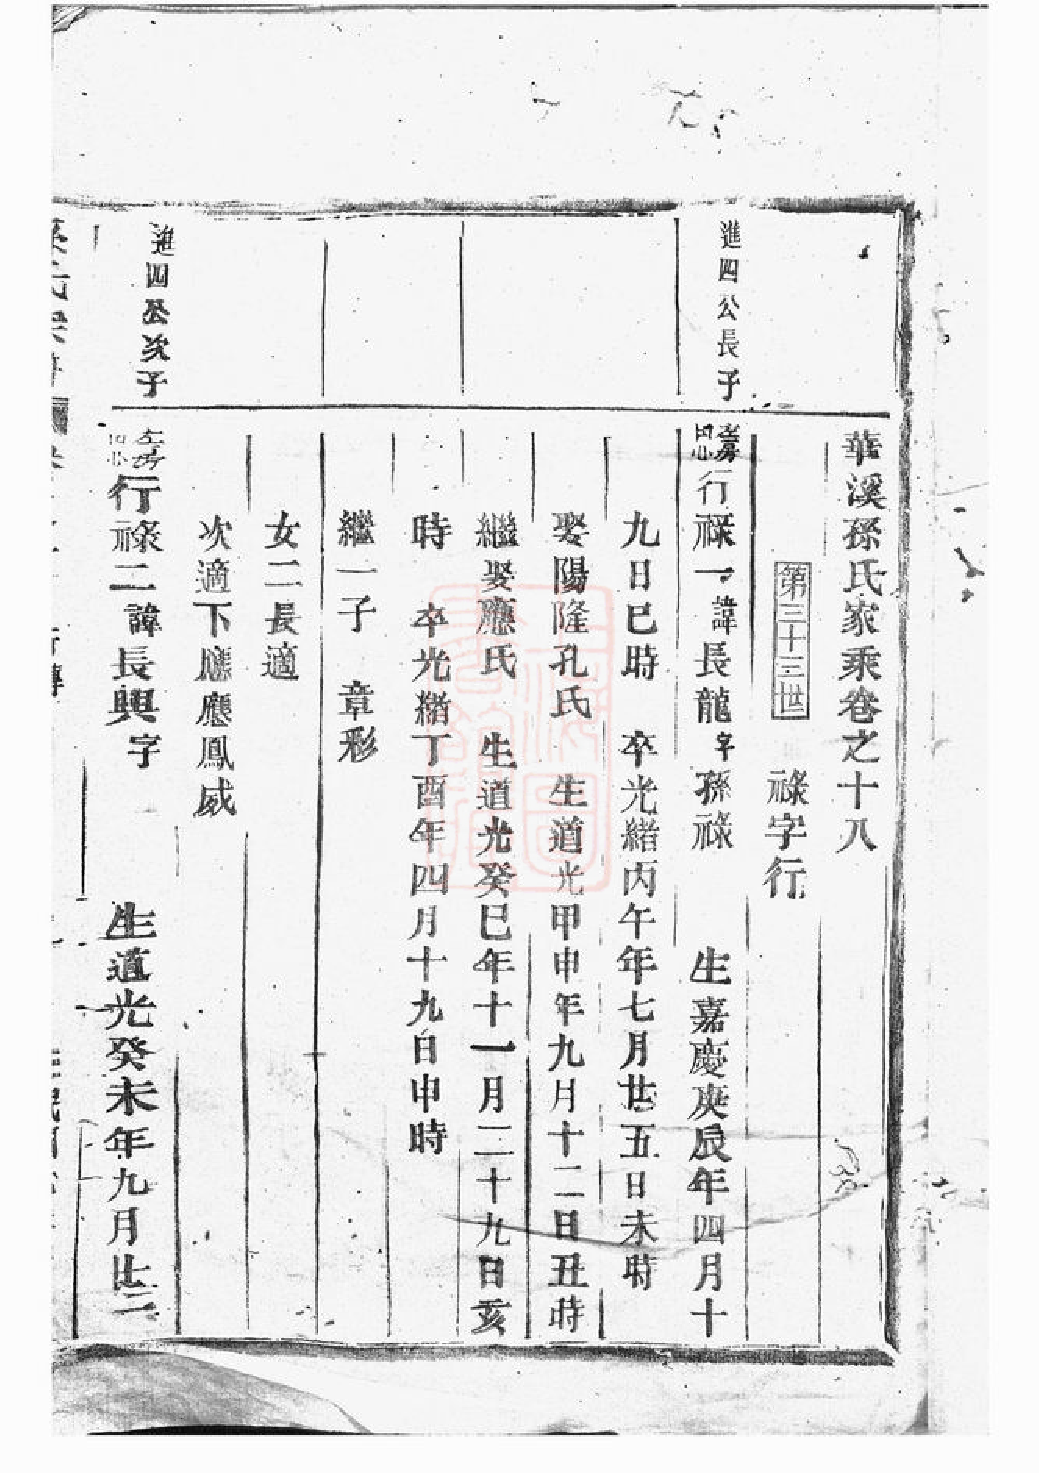 華溪孫氏家乘卷之十八
第三十三世
祿字行
進四公長子
行祿一諱長龍字孫祿 生嘉慶庚辰年四月十
九日巳時 卒光緒丙午年七月廿五日未時
娶陽隆孔氏 生道光甲申年九月十二日丑時
繼娶應氏 生道光癸巳年十一月二十九日亥
時 卒光緒丁酉年四月十九日申時
繼一子 章彩
女二長適
次適下應應鳳威
進四公次子
行祿二諱長興字 生道光癸未年九月廿二